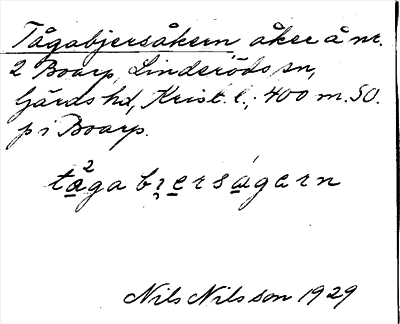 Tågabjersåkern åker å nr.
2 Boarp, Linderöds sn,
Gärds hd, Krist. l.; 400 m. SO.
p i Boarp.
tå²gabi̯ersågern
Nils Nilsson 1929